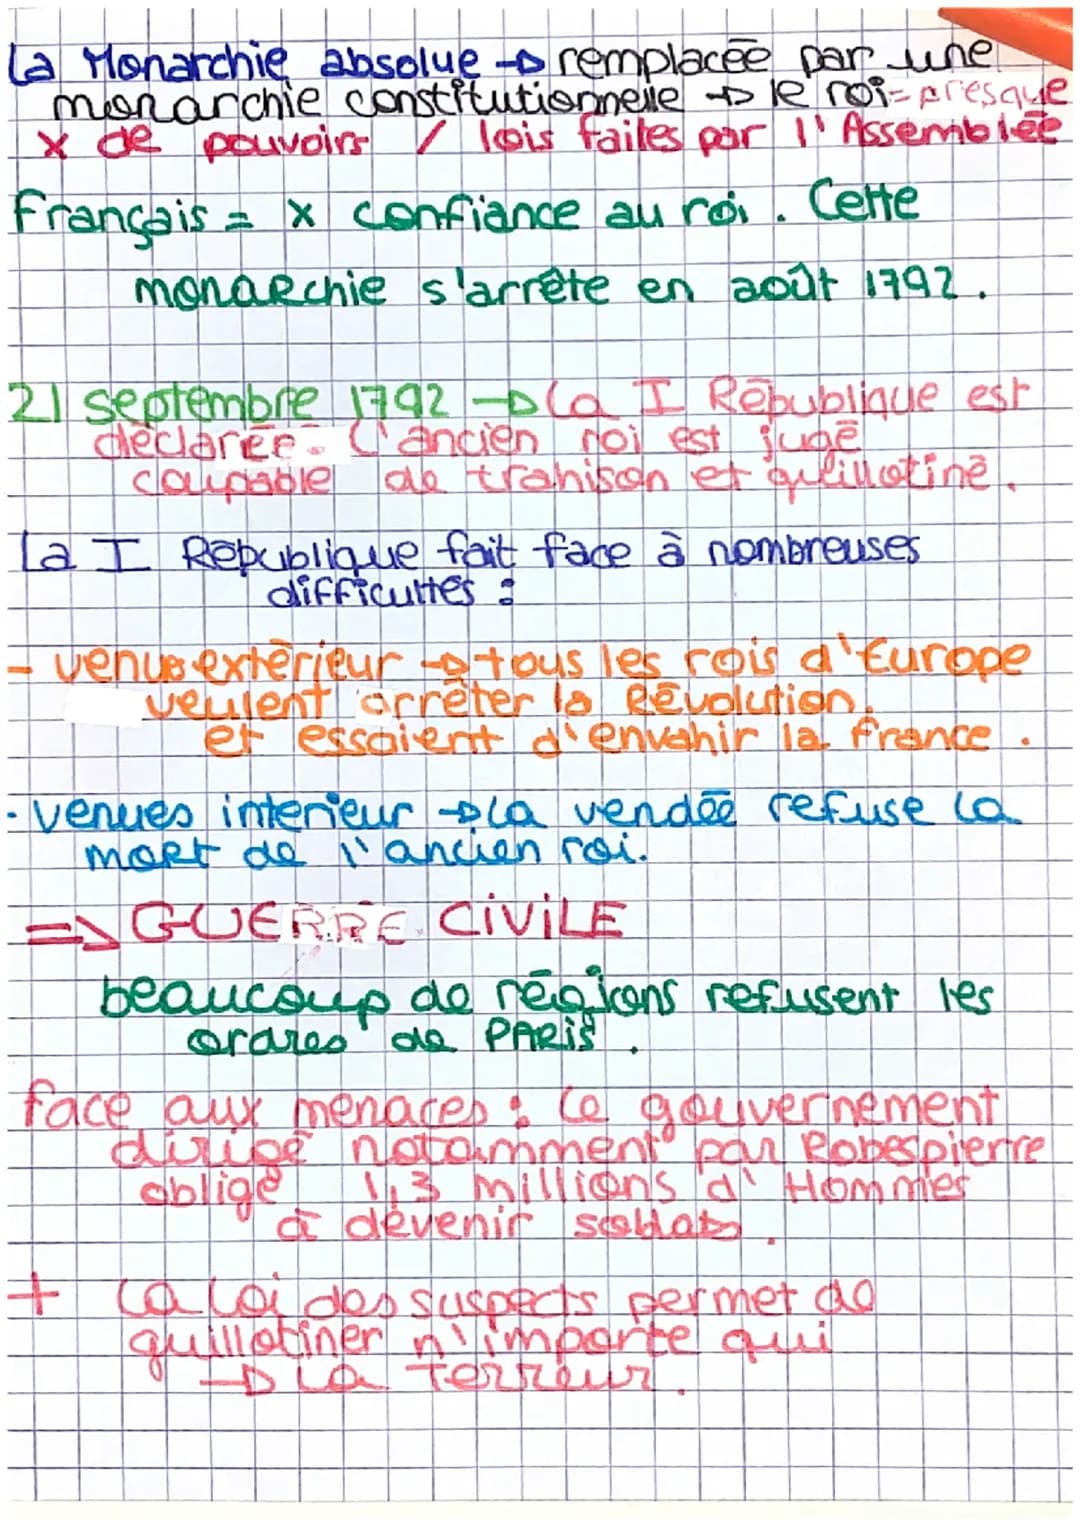 La Monarchie absolue → remplacée par une
monarchie constitutionnelle → le roi = presque
x de pouvoirs / lois failes par l'Assemblée
Français = x confiance au roi. Cette
monarchie s'arrête en août 1792.
21 septembre 1792 → La I République est
déclarée. L'ancien roi est jugé
coupable de trahison et guillotiné.
La I République fait face à nombreuses
difficultés :
- venus extérieur → tous les rois d'Europe
veulent arrêter la Révolution.
et essaient d'envahir la France.
- venues interieur → La vendée refuse la
mort de l'ancien roi.
=> GUERRE CiViLE
beaucoup de régions refusent les
ordres de PARiS.
face aux menaces : Le gouvernement
dirigé notamment par Robespierre
oblige 1,3 millions d'Hommes
à devenir soldats.
+ La Loi des suspects permet de
guillotiner n'importe qui
→ La Terreur.